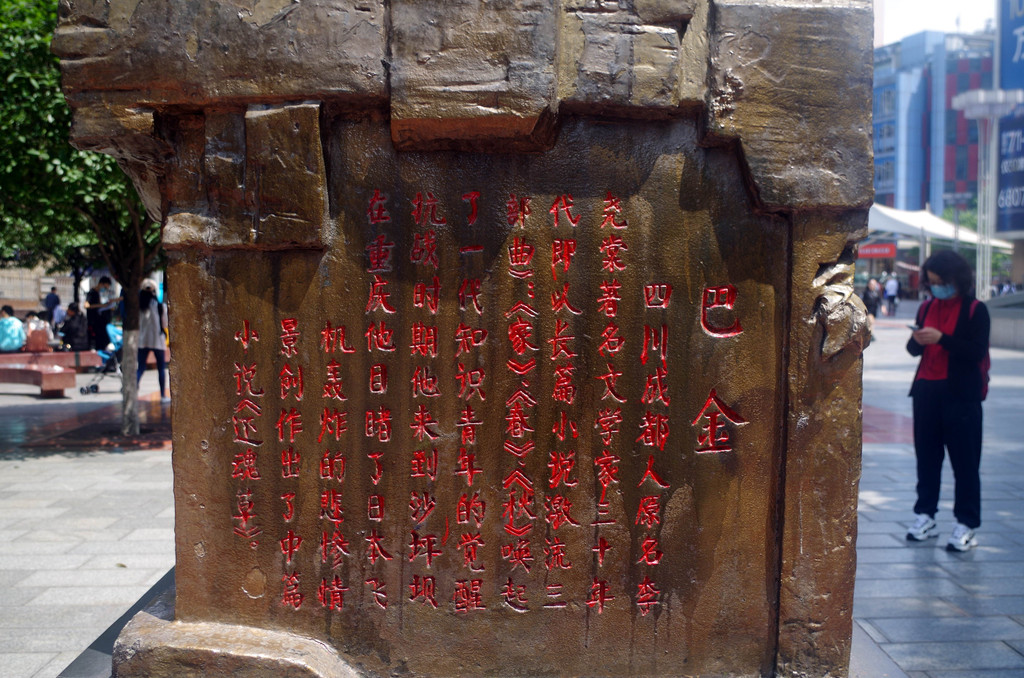 巴金
四川成都人原名李
尧棠著名文学家三十年
代即以长篇小说激流三
部曲《家》、《春》、《秋》唤起
了一代知识青年的觉醒
抗战时期他来到沙坪坝
在重庆他目睹了日本飞
机轰炸的悲惨情
景创作出了中篇
小说《还魂草》。